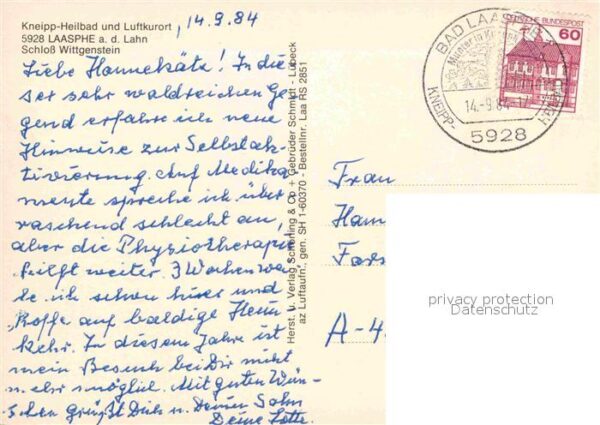 Kneipp-Heilbad und Luftkurort
5928 LAASPHE a. d. Lahn
Schloß Wittgenstein
14.9.84
Liebe Hannekäte! In die
ser sehr waldreichen Ge
gend erfahre ich neue
Hinweise zur Selbstak-
tivierung. Auf Medika
mente spreche ich über
raschend schlecht an,
aber die Physiotherapie
hilft weiter. 3 Wochen wa
re ich schon hier und
hoffe auf baldige Heim
kehr. In diesem Jahre ist
mein Besuch bei Dir nicht
mehr möglich. Mit guten Wün-
schen grüßt Dich u. Deinen Sohn
Deine Lotte.
Herst. u. Verlag Schöning & Co + Gebrüder Schmidt - Lübeck
az Luftaufn. gen. SH 1-60370 - Bestellnr. Laa RS 2851
DEUTSCHE BUNDESPOST
60
BAD LAASPHE
14.-9.84-17
KNEIPP-
5928
Frau
Han
Fars
A-4
privacy protection
Datenschutz